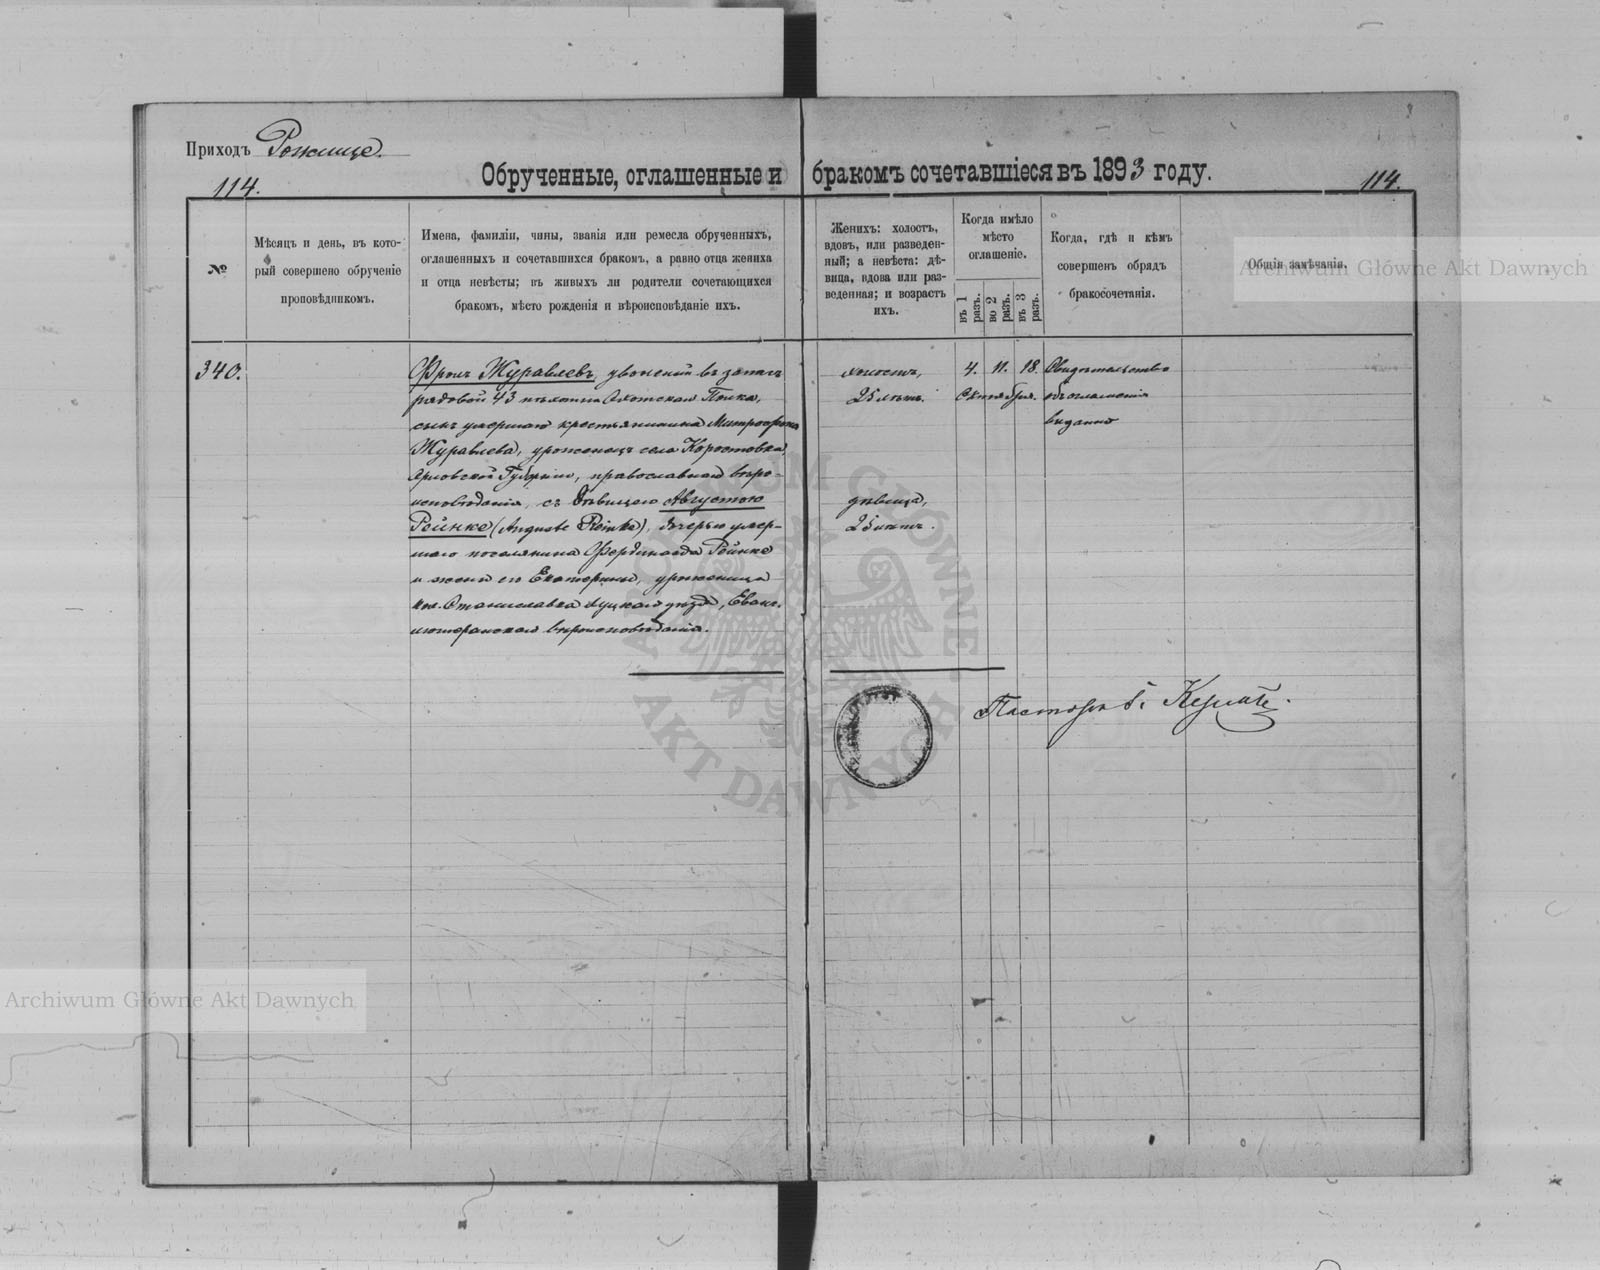 Приходъ Рожище.
114.
Обрученные, оглашенные и бракомъ сочетавшіеся въ 1893 году.
114.
№
Мѣсяцъ и день, въ кото-
рый совершено обрученіе
проповѣдникомъ.
Имена, фамиліи, чины, званія или ремесла обрученныхъ,
оглашенныхъ и сочетавшихся бракомъ, а равно отца жениха
и отца невѣсты; въ живыхъ ли родители сочетающихся
бракомъ, мѣсто рожденія и вѣроисповѣданіе ихъ.
Женихъ: холостъ,
вдовъ, или разведен-
ный; а невѣста: дѣ-
вица, вдова или раз-
веденная; и возрастъ
ихъ.
Когда имѣло
мѣсто
оглашеніе.
въ 1 разъ.
во 2 разъ.
въ 3 разъ.
Когда, гдѣ и кѣмъ
совершенъ обрядъ
бракосочетанія.
Общія замѣчанія.
340.
Фролъ Журавлевъ, уволенный въ запасъ
рядовой 43 пѣхотнаго Охотскаго Полка,
сынъ умершаго крестьянина Митрофана
Журавлева, уроженецъ села Коростовка
Орловской Губерніи, православнаго вѣро-
исповѣданія, съ дѣвицею Августою
Рейнке (Auguste Reinke), дочерью умер-
шаго поселянина Фердинанда Рейнке
и жены его Екатерины, уроженица
кол. Станиславка Луцкаго уѣзда, Еванг.
лютеранскаго вѣроисповѣданія.
холостъ,
25 лѣтъ.
дѣвица,
25 лѣтъ.
4. 11. 18.
Свидѣтельство
объ оглашеніи
выдано
Пасторъ
Archiwum Główne Akt Dawnych
Archiwum Główne Akt Dawnych
ARCHIWUM GŁÓWNE AKT DAWNYCH